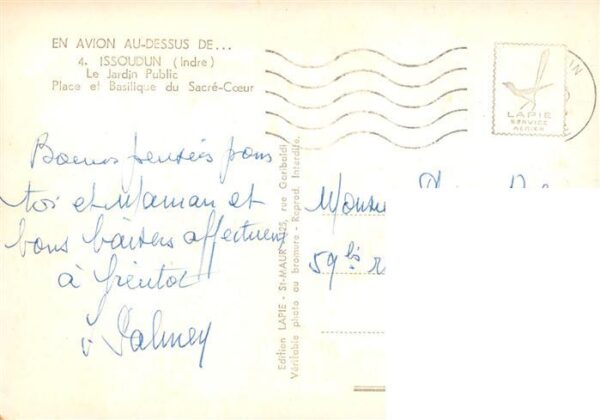 EN AVION AU-DESSUS DE...
4. ISSOUDUN (Indre)
Le Jardin Public
Place et Basilique du Sacré-Cœur
Bonnes pensées pour
toi et Maman et
bons baisers affectueux
à bientôt
LAPIE
SERVICE
AERIEN
Edition LAPIE - St-MAUR - rue Garibaldi
Véritable photo au bromure - Reprod. Interdite.
59 bis